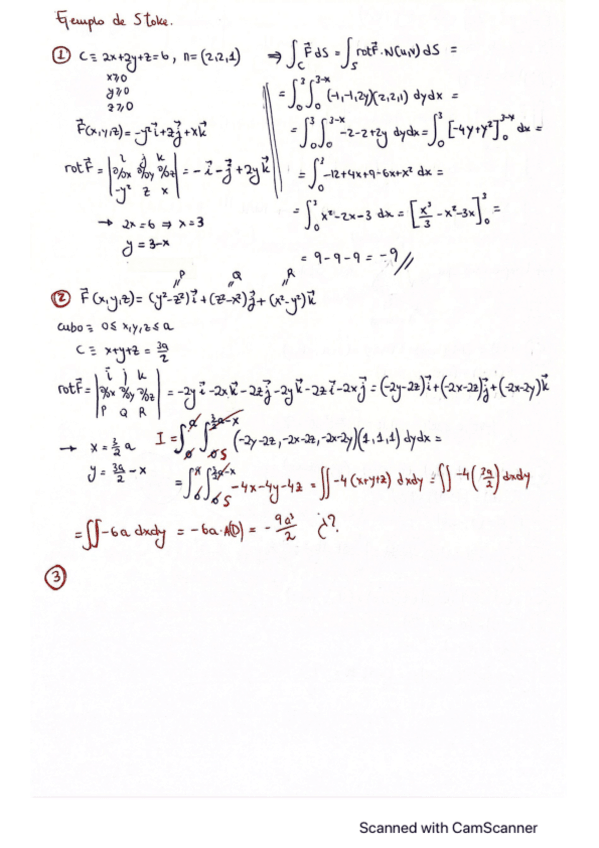 Ejemplo de Stoke.
① C ≡ 2x+2y+z=6, n=(2,2,1) ⇒ ∫_C F⃗ dS = ∫_S rotF⃗·N(u,v) dS =
x≥0
y≥0
z≥0
= ∫₀³∫₀^{3-x} (-1,-1,2y)(2,2,1) dydx =
F⃗(x,y,z)=-y²i⃗+zj⃗+xk⃗
= ∫₀³∫₀^{3-x} -2-2+2y dydx = ∫₀³ [-4y+y²]₀^{3-x} dx =
rotF⃗ = | i j k ; ∂/∂x ∂/∂y ∂/∂z ; -y² z x | = -i⃗-j⃗+2yk⃗
= ∫₀³ -12+4x+9-6x+x² dx =
→ 2x=6 ⇒ x=3
y=3-x
= ∫₀³ x²-2x-3 dx = [x³/3 -x²-3x]₀³ =
= 9-9-9 = -9 //
P Q R
② F⃗(x,y,z)=(y²-z²)i⃗+(z²-x²)j⃗+(x²-y²)k⃗
cubo ≡ 0≤x,y,z≤a
C ≡ x+y+z = 3a/2
rotF⃗ = | i⃗ j k ; ∂/∂x ∂/∂y ∂/∂z ; P Q R | = -2yi⃗-2xk⃗-2zj⃗-2yk⃗-2zi⃗-2xj⃗ = (-2y-2z)i⃗+(-2x-2z)j⃗+(-2x-2y)k⃗
→ x = 3/2 a
I = ∫∫ (-2y-2z,-2x-2z,-2x-2y)(1,1,1) dydx =
y = 3a/2 - x
= ∫∫_S -4x-4y-4z = ∫∫ -4(x+y+z) dxdy = ∫∫ -4(3a/2) dxdy
= ∫∫ -6a dxdy = -6a·A(D) = -9a³/2 ¿?
③
Scanned with CamScanner